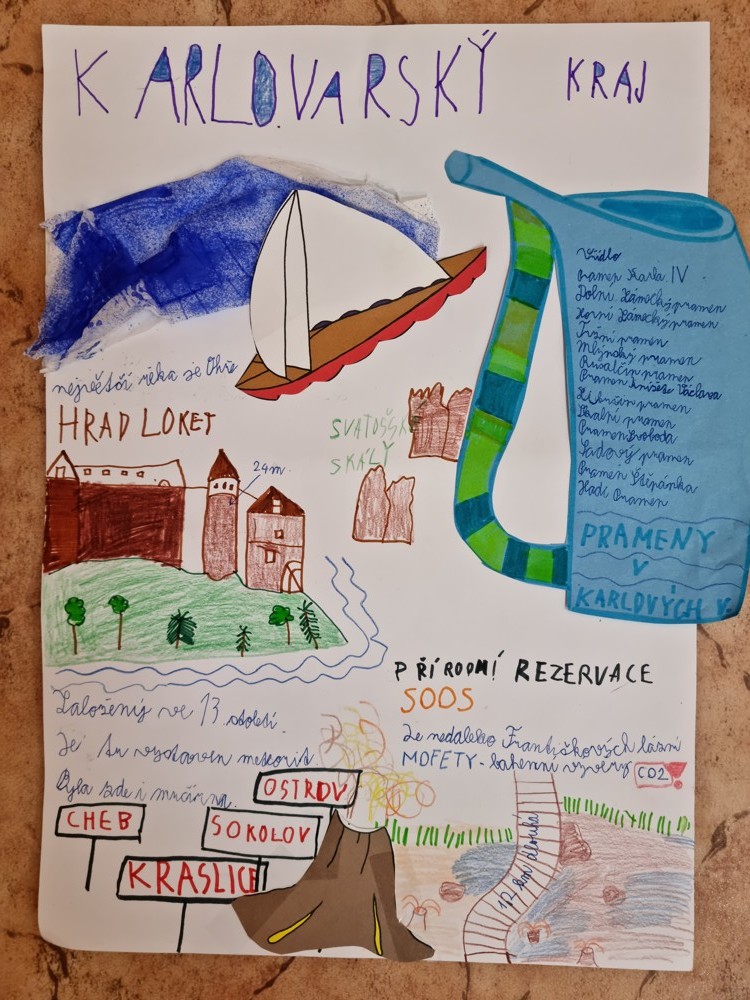 KARLOVARSKÝ KRAJ
největší řeka je Ohře
HRAD LOKET
24m
SVATOŠSKÉ
SKÁLY
Vřídlo
pramen Karla IV
Dolní Zámecký pramen
Horní Zámecký pramen
Tržní pramen
Mlýnský pramen
Rusalčin pramen
Pramen knížete Václava
Libušin pramen
Skalní pramen
Pramen Svoboda
Sadový pramen
Pramen Štěpánka
Hadí Pramen
PRAMENY
V
KARLOVÝCH V.
Založený ve 13 století.
Je tu vystaven meteorit
Byla zde i mučírna.
PŘÍRODNÍ REZERVACE
SOOS
Je nedaleko Františkových lázní
MOFETY - bahenní vývěry CO2!
OSTROV
CHEB
SOKOLOV
KRASLICE
km dlouhá